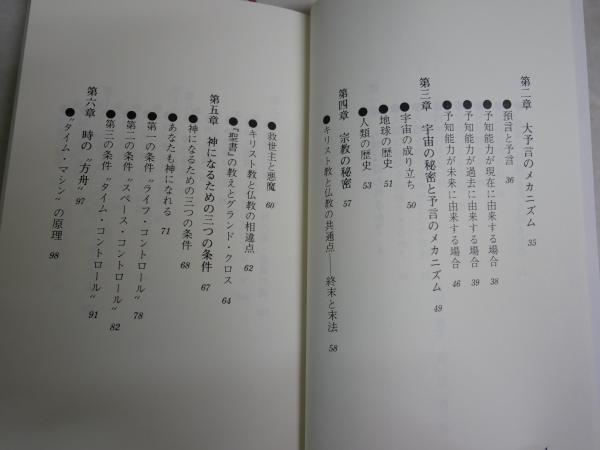 第二章 大予言のメカニズム 35
●預言と予言 36
●予知能力が現在に由来する場合 38
●予知能力が過去に由来する場合 39
●予知能力が未来に由来する場合 46
第三章 宇宙の秘密と予言のメカニズム 49
●宇宙の成り立ち 50
●地球の歴史 51
●人類の歴史 53
第四章 宗教の秘密 57
●キリスト教と仏教の共通点──終末と末法 58
●救世主と悪魔 60
●キリスト教と仏教の相違点 62
●『聖書』の教えとグランド・クロス 64
第五章 神になるための三つの条件 67
●神になるための三つの条件 68
●あなたも神になれる 71
●第一の条件〝ライフ・コントロール〟 78
●第二の条件〝スペース・コントロール〟 82
●第三の条件〝タイム・コントロール〟 91
第六章 時の〝方舟〟 97
●〝タイム・マシン〟の原理 98